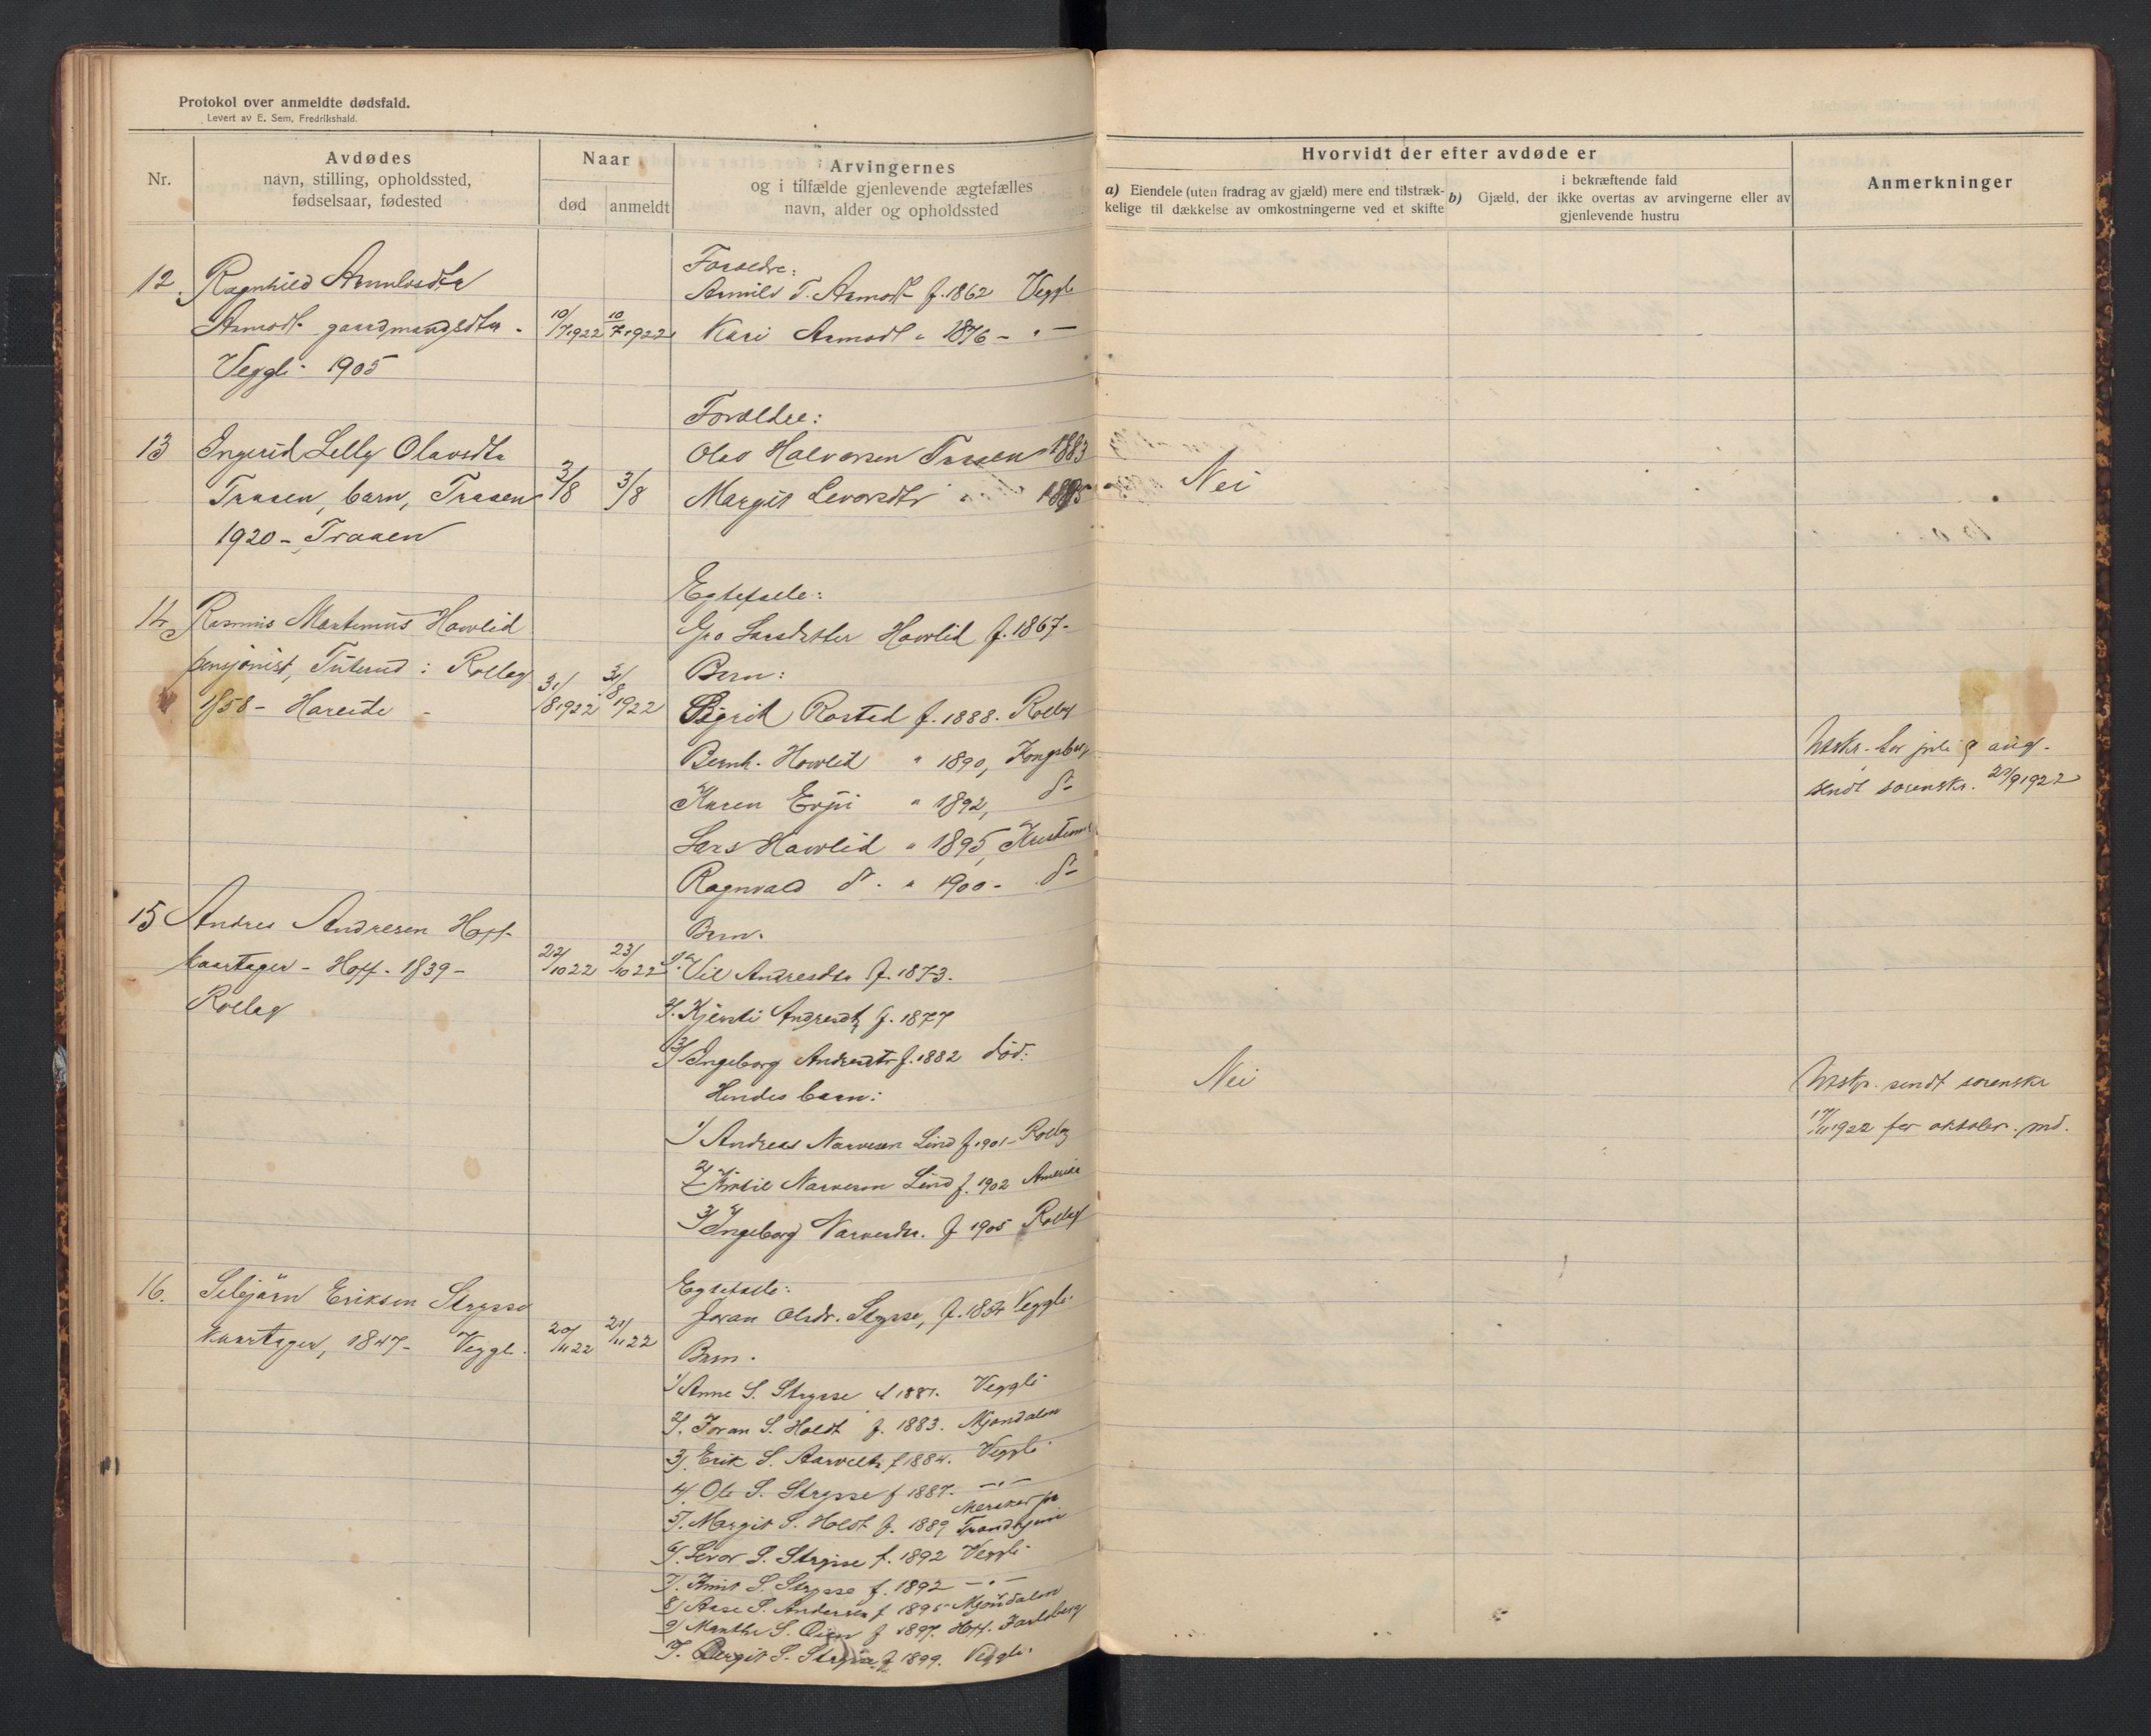 Protokol over anmeldte dødsfald.
Levert av E. Sem, Fredrikshald.
Nr.
Avdødes
navn, stilling, opholdssted,
fødselsaar, fødested
Naar
død
anmeldt
Arvingernes
og i tilfælde gjenlevende ægtefælles
navn, alder og opholdssted
Hvorvidt der efter avdøde er
a) Eiendele (uten fradrag av gjæld) mere end tilstræk-
kelige til dækkelse av omkostningerne ved et skifte
i bekræftende fald
b) Gjæld, der ikke overtas av arvingerne eller av
gjenlevende hustru
Anmerkninger
12. Ragnhild
gaardmandsdtr.
Veggli 1905
10/7 1922
10/7 1922
Foreldre:
f. 1862 Veggli
Kari 1876 - " -
13 Ingerid Lelly Olavsdtr
Traaen, barn, Traaen
1920 - Traaen
3/8
3/8
Forældre:
Olav Halvorsen Traaen 1883
Margit Levorsdtr 1885
Nei
14 Rasmus Martinus Hovlid
pensjonist, i Rollag
1858 - Hareide
31/8 1922
31/8 1922
Egtefelle:
Gro Larsdatter Hovlid f. 1867-
Barn:
Sigrid Rostad f. 1888. Rollag
Bernh. Hovlid " 1890, Kongsberg
Karen " 1892, do
Lars Hovlid " 1895,
Ragnvald do. " 1900 - do
for juli & aug.
sendt sorenskr. /9 1922
15 Andres Andresen Hoff
kaartager - Hoff - 1839 -
Rollag
22/10 22
23/10 22
Barn.
1. Andresdtr f. 1873.
2. Kjersti Andresdtr f. 1877
3/ Ingeborg Andresdtr f. 1882 død:
Hendes barn:
1/ Andreas Narvesen Lind f 1901 - Rollag
2/ Narvesen Lind f. 1902 Amerika
3/ Ingeborg Narvesdtr. f 1905 Rollag
Nei
sendt sorenskr
17/11 1922 for oktober md.
16. Eriksen Strysse
kaartager, 1847 - Veggli.
20/11 22
21/11 22
Egtefælle:
Joran Olsdr. Strysse, f. 1854 Veggli
Barn.
1/ Anne S. Strysse f 1881. Veggli
2/. Joran S. Holdt f. 1883. Mjøndalen
3/. Erik S. f 1884. Veggli
4/. Ole S. Strysse f 1887. - " -
5/. Margit S. Holdt f. 1889 Meraker pr
Trondhjem
6/. Levor S. Strysse f. 1892 Veggli
7/. S. Strysse f. 1892 - " -
8/ Aase S. Andersen f 1895 Mjøndalen
9/ Marthe S. f 1897. Hoff. Jarlsberg
Birgit S. Strysse f 1899. Veggli.